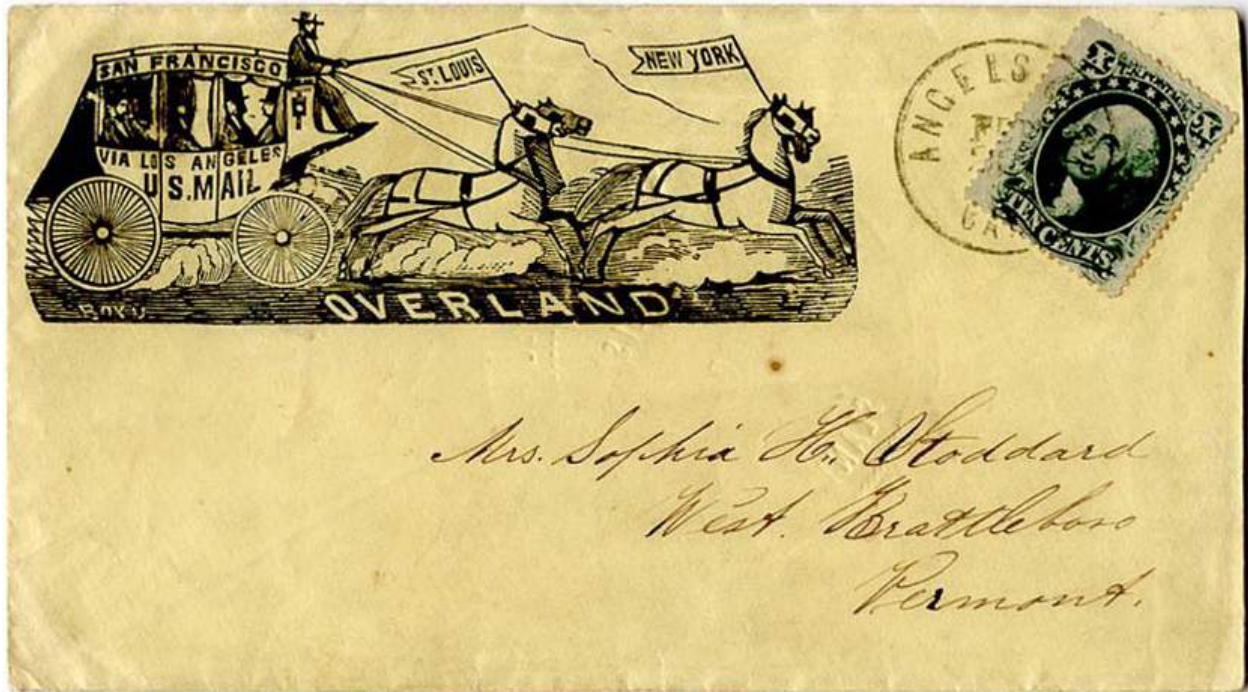 SAN FRANCISCO
VIA LOS ANGELES
U.S. MAIL
ST. LOUIS
NEW YORK
OVERLAND
ANGELS
TEN CENTS
Mrs. Sophia H. Stoddard
West. Brattleboro
Vermont.